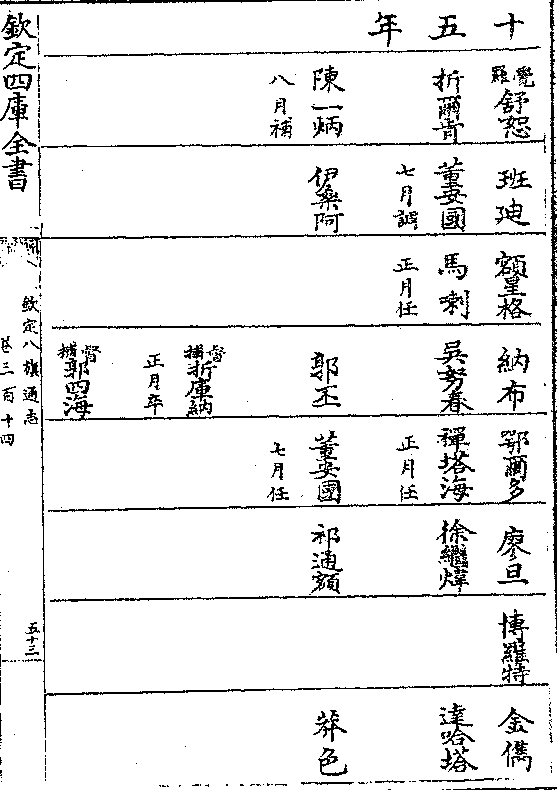 十五年
覺羅舒恕
折爾肯
陳一炳
八月補
班迪
董安國
七月調
伊桑阿
額星格
馬喇
正月任
納布
吳努春
郭丕
督捕折庫納
正月卒
督捕郭四海
鄂爾多
禪塔海
正月任
董安國
七月任
廖旦
徐繼煒
祁通額
博羅特
金儁
達哈塔
莽色
欽定四庫全書
欽定八旗通志
卷三百十四
五十三